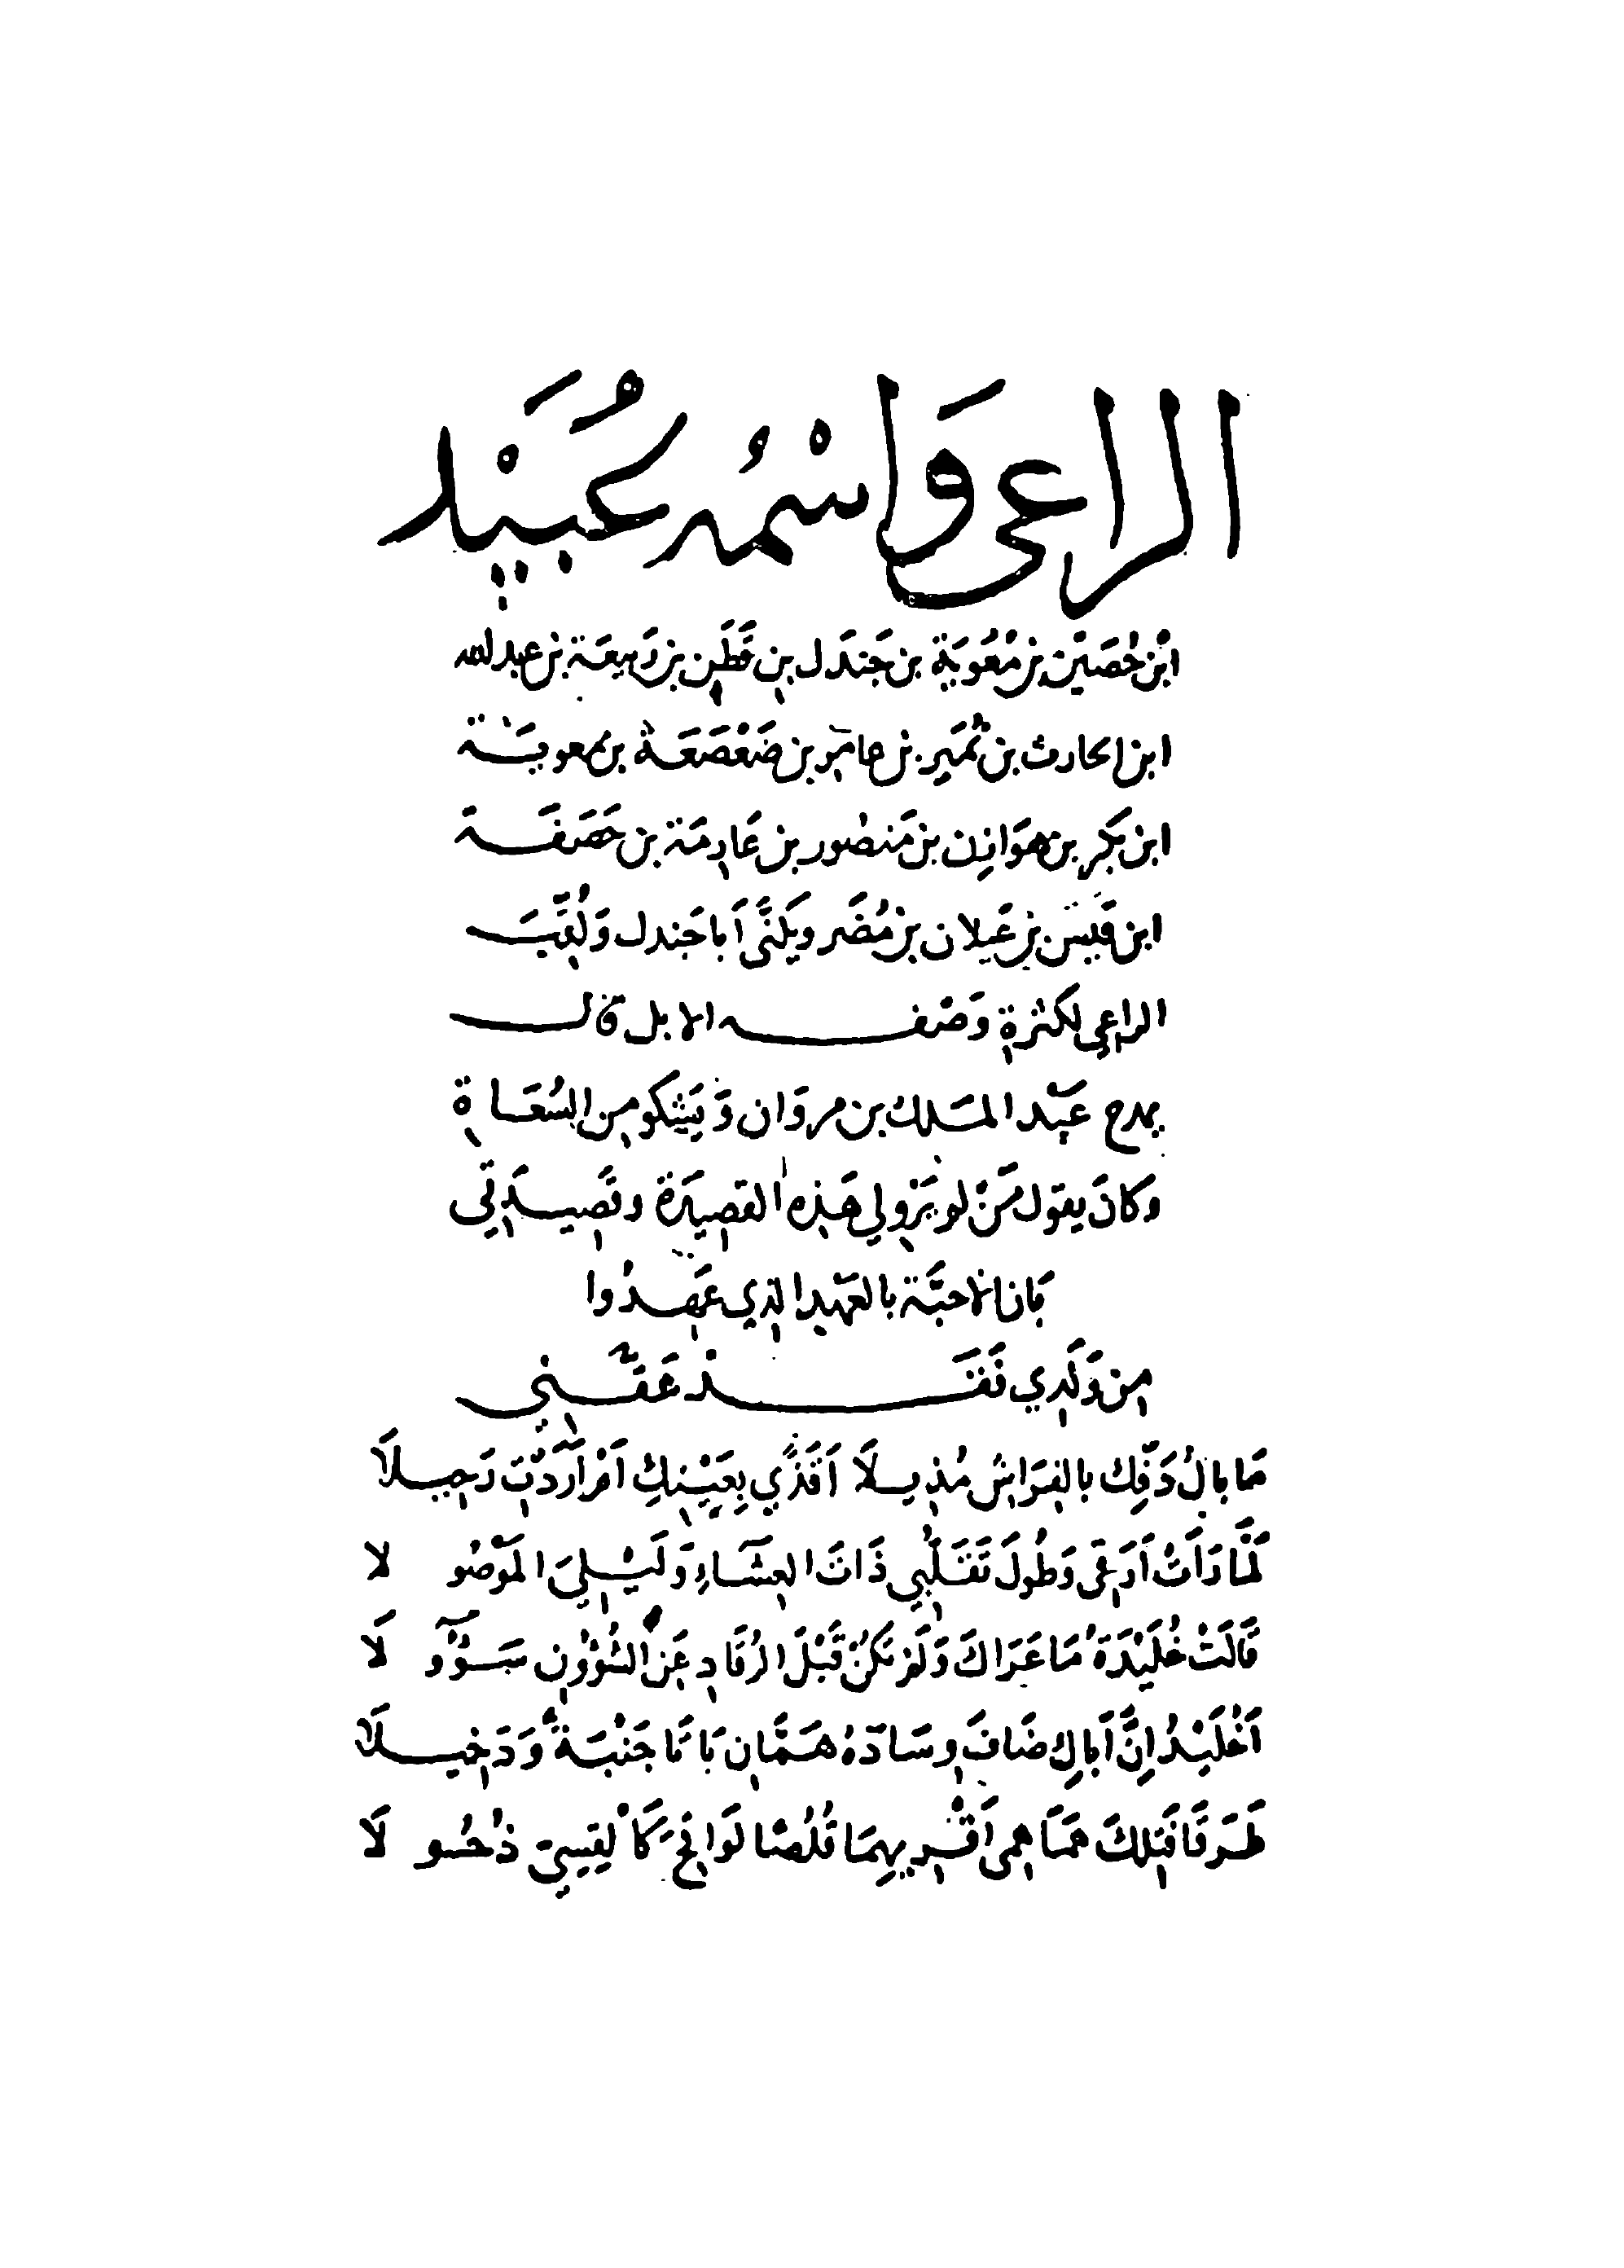 الراعي وَاسْمُه عُبَيْد
ابْن حُصَيْن بن مُعٰوِيَة بن جَندَل بنِ قَطَنِ بن رَبِيعَة بن عبد الله
ابن الحارث بن نُمَيرِ بن عامِرِ بن صَعْصَعَة بن معوية
ابن بَكرِ بن هوَازِن بن مَنصُور بن عَكرِمَة بن خَصَفَة
ابن قَيس بن عَيلان بن مُضَر ويُكنَّى أَبا جَندل وَلُقِّبَ
الراعِي لِكثرةِ وَصْفه الابل قال
يمدح عَبْد المَلك بن مروَان وَيَشكو مِن السُعَاةِ
وَكانَ يقول مَنْ لم يَرْوِ لي هَذِه القصِيدَة وقصِيدَتي
بَانَ الأحبَّة بالعَهْدِ الذِي عَهِدُوا
مِن وَلَدِي فَقَدْ عَقَّنِي
مَا بالُ دَفِّك بالفِرَاشِ مُذِيلاَ أَقَذًى بِعَيْنِكِ أَمْ أَرَدْتَ رَحِيلاَ
لَمَّا رَأَتْ أَرَقِي وَطُولَ تَقَلُّبِي ذَاتَ العِشَاءِ وَلَيْلِيَ المَوْصُولا
قَالَتْ خُلَيْدَةُ مَا عَرَاكَ وَلَمْ تَكُنْ قَبْلَ الرُقَادِ عَنِ الشُؤُونِ سَؤُولَا
أَخُلَيْدُ إِنَّ أَباكِ ضَافَ وِسَادَهُ هَمَّانِ بَاتَا جَنْبَةً وَدَخِيلَا
طَرَقَا فَتِلكَ هَمَاهِمِي أَقْرِيهِمَا قُلُصًا لَوَاقِحَ كَالْقِسِيِّ وَحُولَا